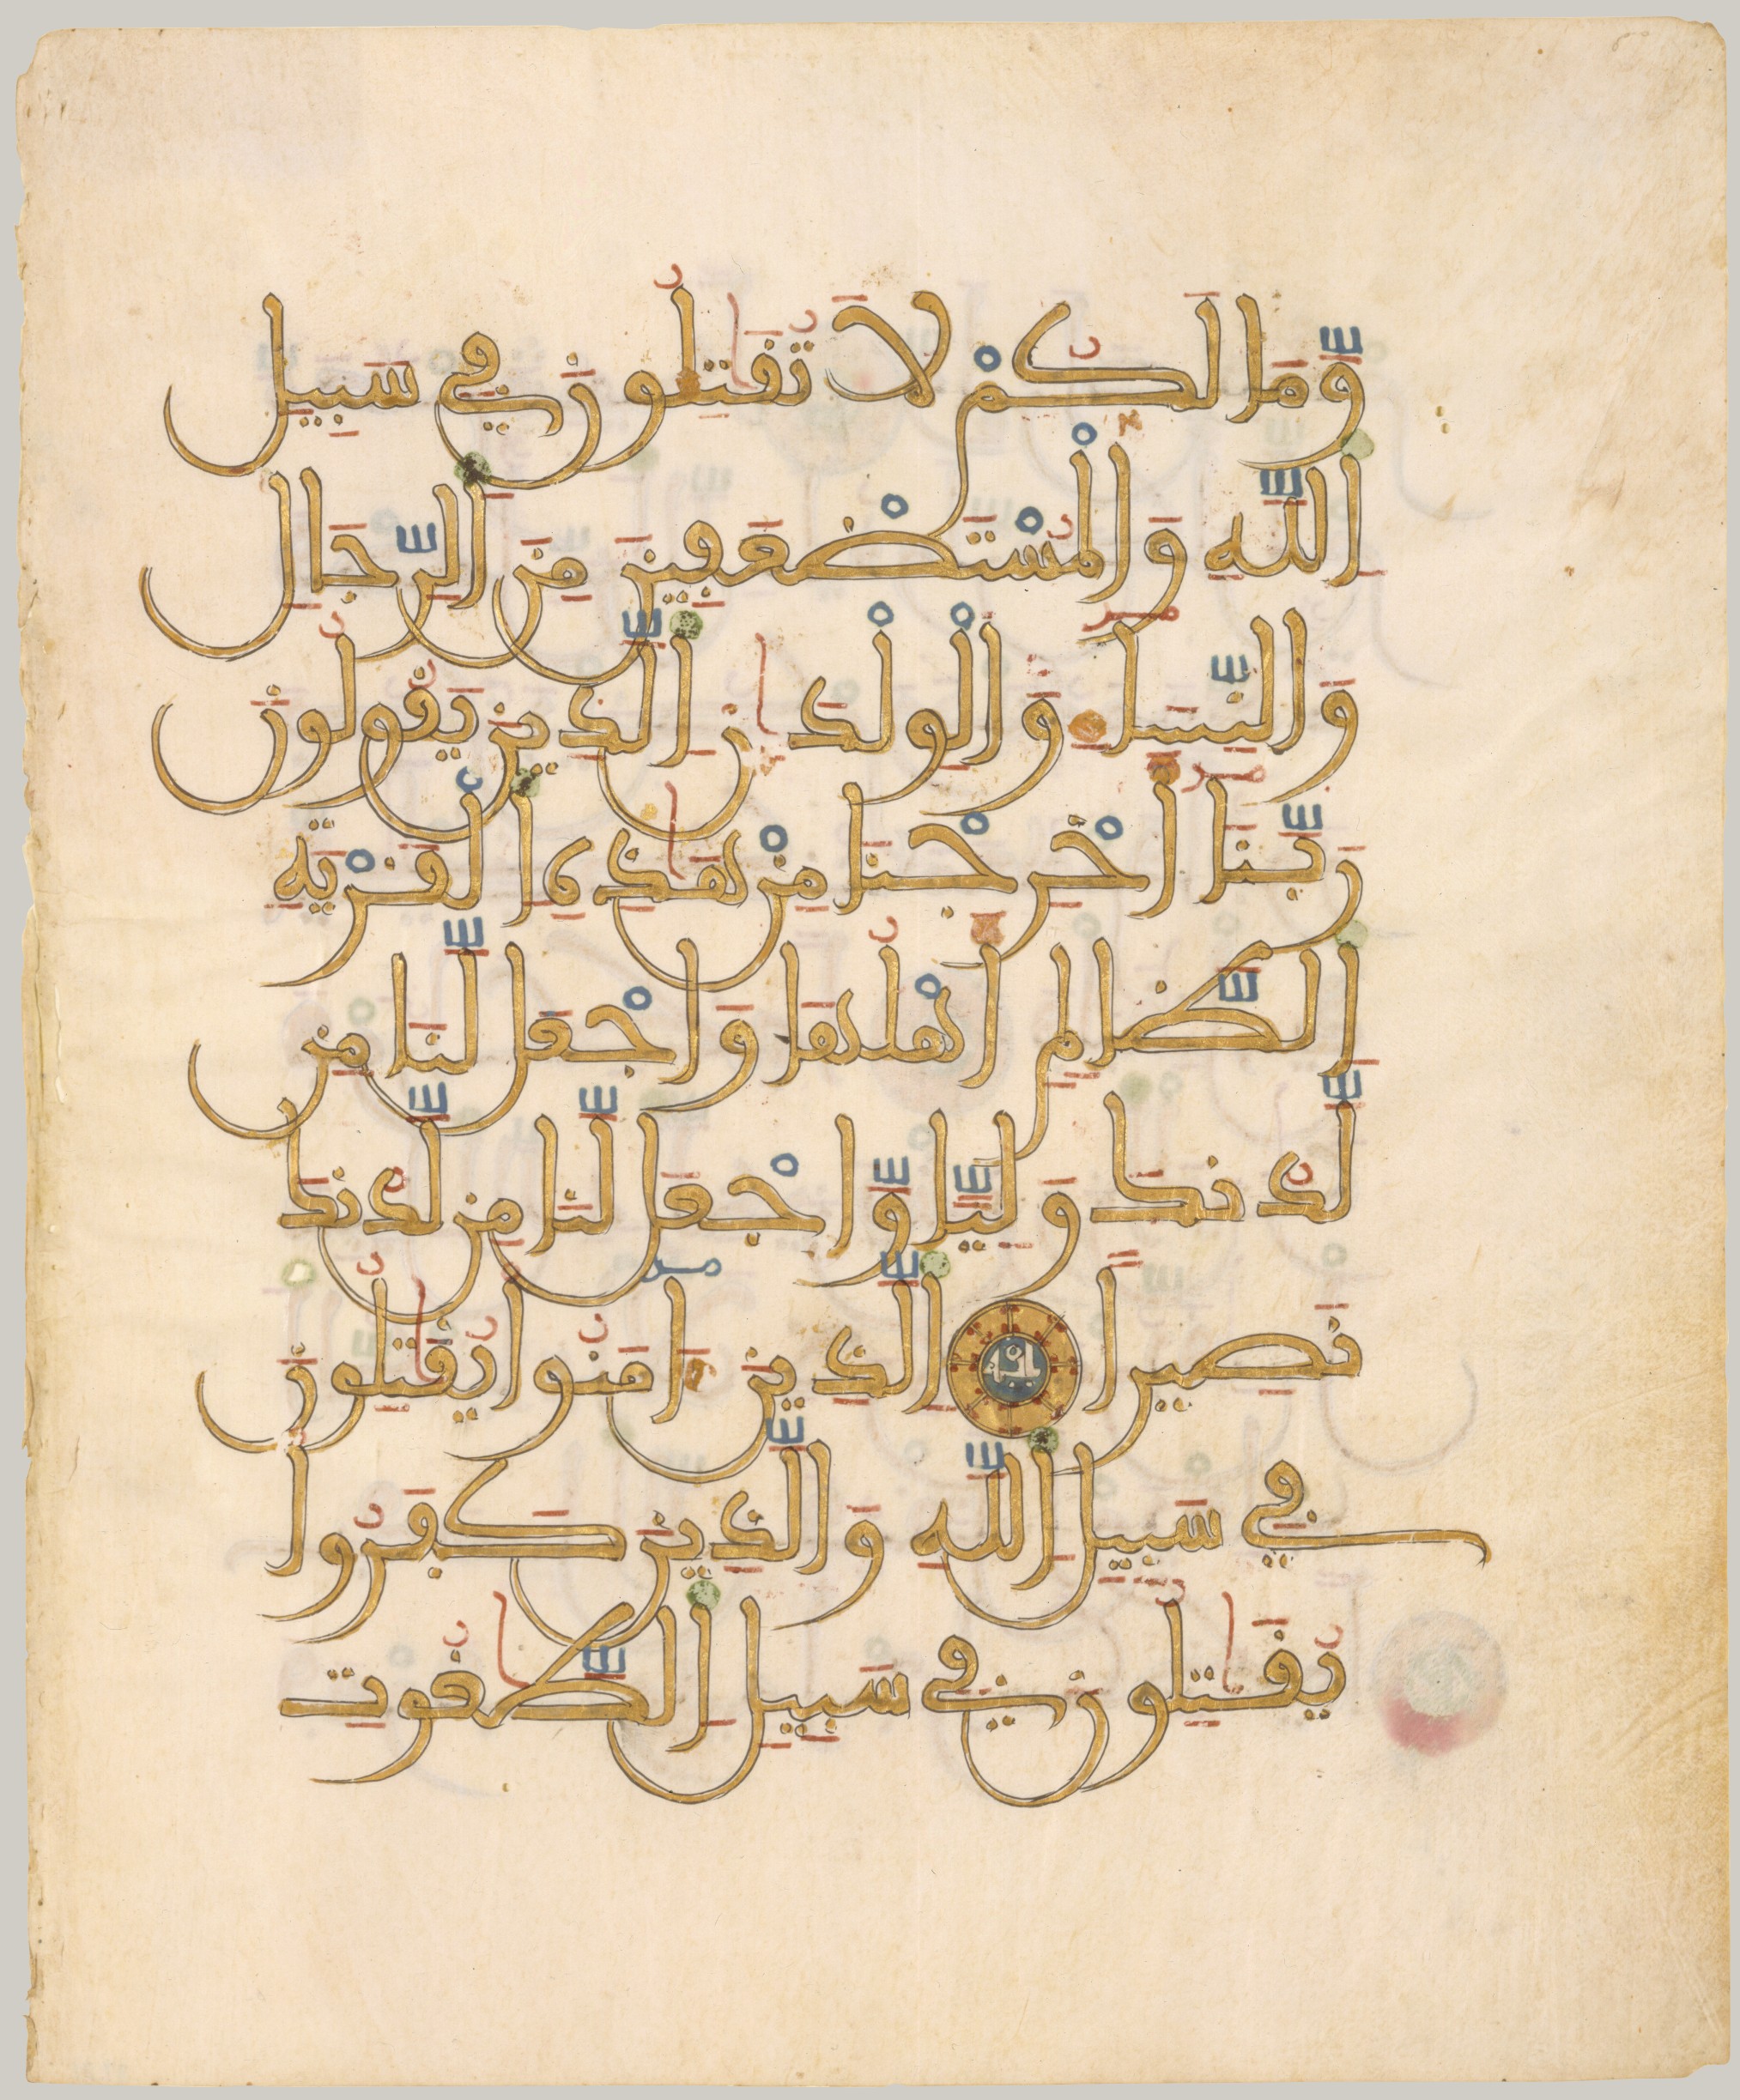 وَّمَا لَكُمْ لَا تُقَٰتِلُونَ فِي سَبِيلِ
اللَّهِ وَالْمُسْتَضْعَفِينَ مِنَ الرِّجَالِ
وَالنِّسَاءِ وَالْوِلْدَٰنِ الَّذِينَ يَقُولُونَ
رَبَّنَا أَخْرِجْنَا مِنْ هَٰذِهِ الْقَرْيَةِ
الظَّالِمِ أَهْلُهَا وَاجْعَل لَّنَا مِن
لَّدُنكَ وَلِيًّا وَّاجْعَل لَّنَا مِن لَّدُنكَ
نَصِيرًا الَّذِينَ ءَامَنُوا يُقَٰتِلُونَ
فِي سَبِيلِ اللَّهِ وَالَّذِينَ كَفَرُوا
يُقَٰتِلُونَ فِي سَبِيلِ الطَّٰغُوتِ